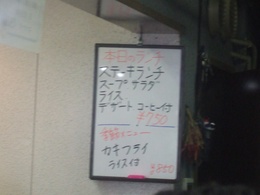 本日のランチ
ステーキランチ
スープ サラダ
ライス
デザート コーヒー付
¥750
メニュー
カキフライ
ライス付
¥850